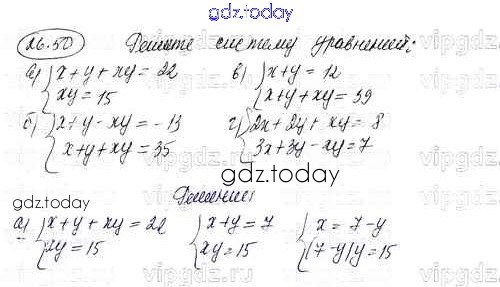 gdz.today
26.50 Решите систему уравнений:
а) { x + y + xy = 22
xy = 15
в) { x + y = 12
x + y + xy = 39
б) { x + y - xy = -13
x + y + xy = 35
г) { 2x + 2y + xy = 8
3x + 3y - xy = 7
gdz.today
Решение:
gdz.today
а) { x + y + xy = 22
xy = 15
{ x + y = 7
xy = 15
{ x = 7 - y
(7 - y)y = 15
vipgdz